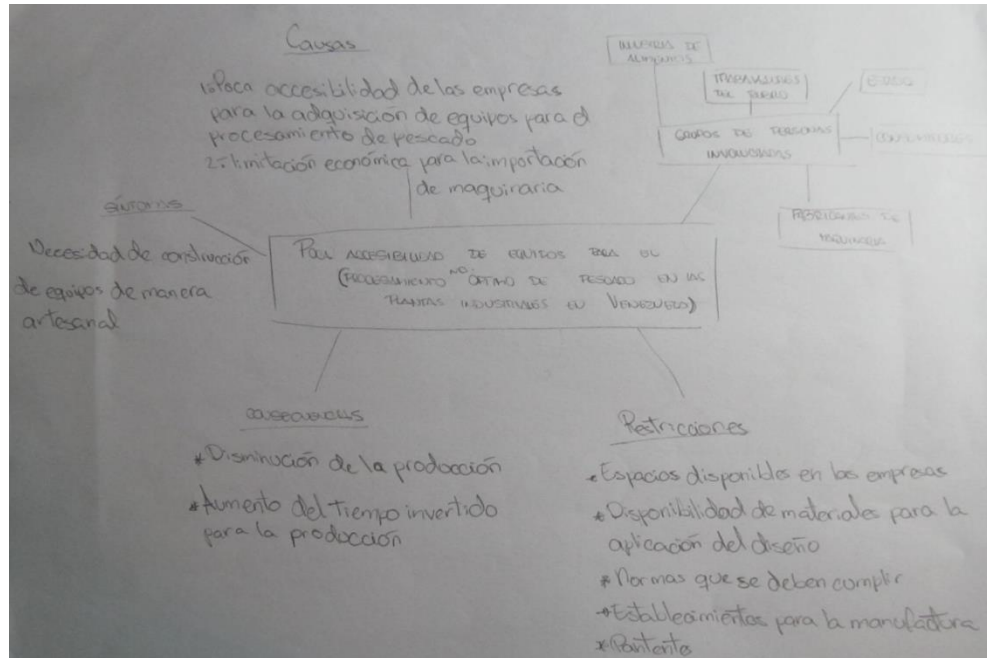 Causas
1- Poca accesibilidad de las empresas
para la adquisición de equipos para el
procesamiento de pescado
2- limitación económica para la importación
de maquinaria
INDUSTRIA DE
ALIMENTOS
TRABAJADORES
DEL RUBRO
ESTADO
GRUPOS DE PERSONAS
INVOLUCRADAS
CONSUMIDORES
FABRICANTES DE
MAQUINARIA
SÍNTOMAS
Necesidad de construcción
de equipos de manera
artesanal
POCA ACCESIBILIDAD DE EQUIPOS PARA EL
(PROCESAMIENTO NO ÓPTIMO DE PESCADO EN LAS
PLANTAS INDUSTRIALES EN VENEZUELA)
CONSECUENCIAS
* Disminución de la producción
* Aumento del tiempo invertido
para la producción
Restricciones
* Espacios disponibles en las empresas
* Disponibilidad de materiales para la
aplicación del diseño
* Normas que se deben cumplir
* Establecimientos para la manufactura